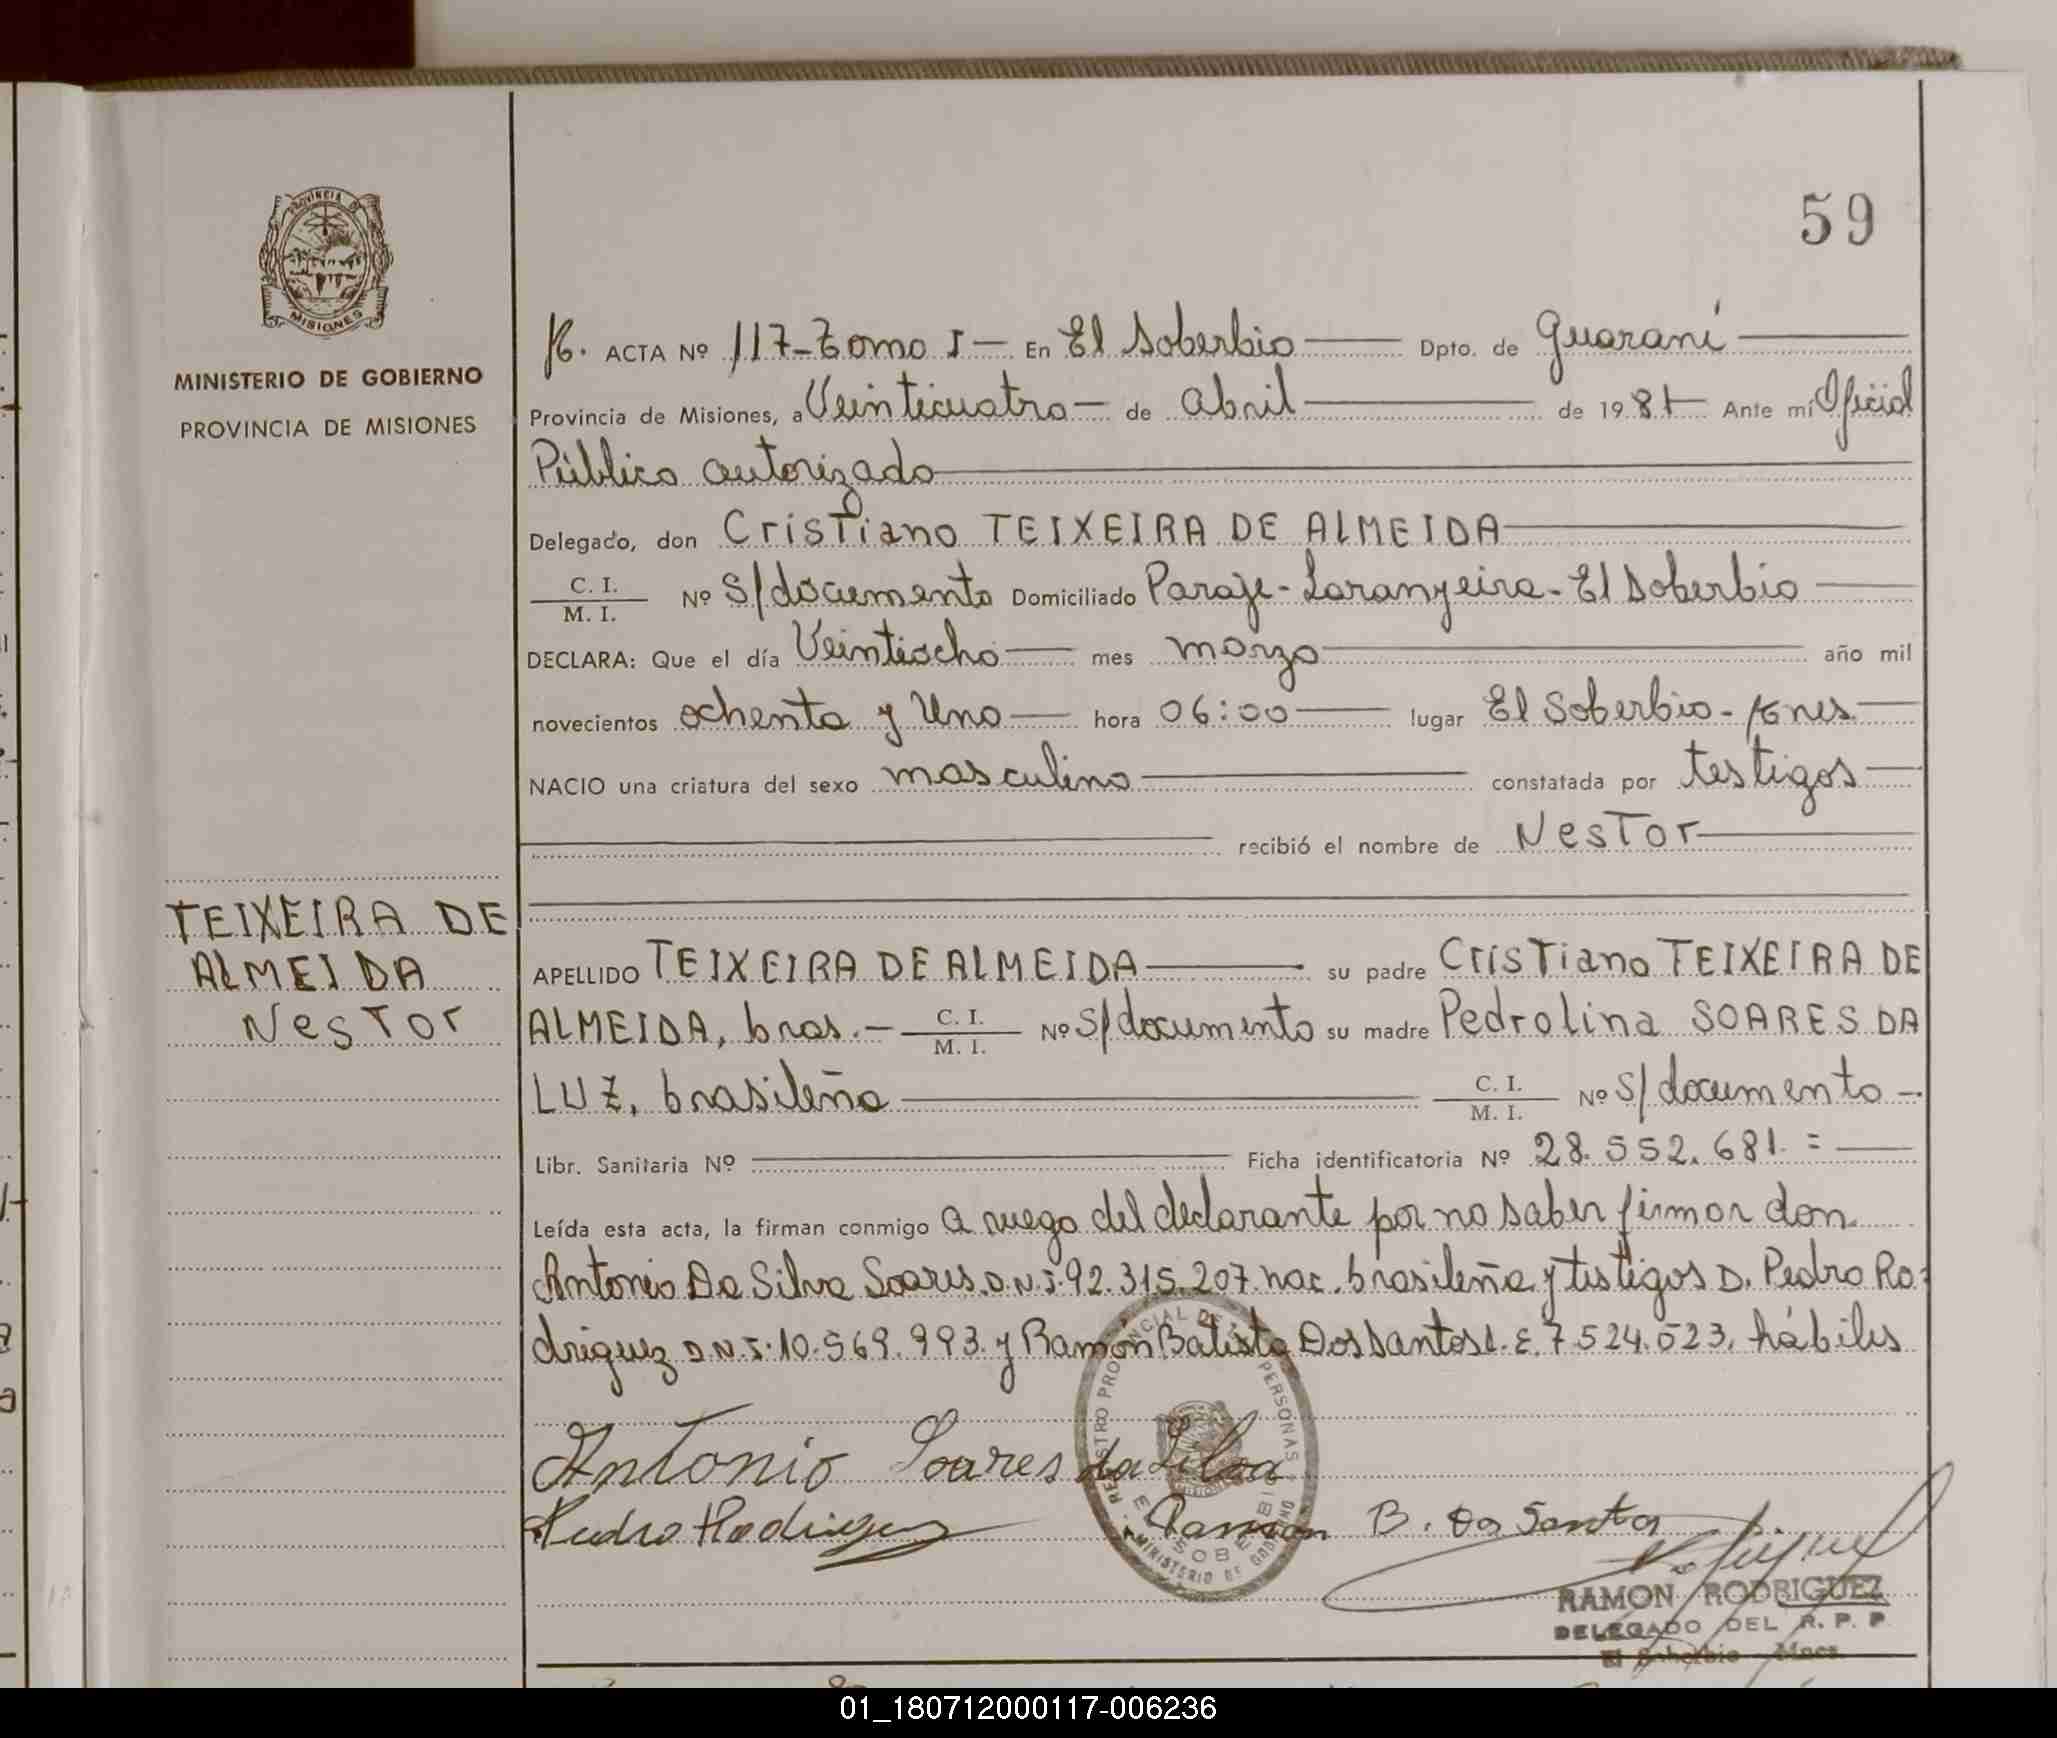 59
PROVINCIA DE
MISIONES
MINISTERIO DE GOBIERNO
PROVINCIA DE MISIONES
ACTA Nº 117-Tomo I- En El Soberbio Dpto. de Guaraní
Provincia de Misiones, a Veinticuatro de abril de 1981 Ante mí Oficial
Público autorizado
Delegado, don Cristiano TEIXEIRA DE ALMEIDA
C. I.
M. I. Nº S/documento Domiciliado Paraje-Laranyeira-El Soberbio
DECLARA: Que el día Veintiocho mes marzo año mil
novecientos ochenta y Uno hora 06:00 lugar El Soberbio-
NACIO una criatura del sexo masculino constatada por testigos
recibió el nombre de NesTor
TEIXEIRA DE
ALMEIDA
NesTor
APELLIDO TEIXEIRA DE ALMEIDA su padre Cristiano TEIXEIRA DE
ALMEIDA, bras.- C. I. M. I. Nº S/documento su madre Pedrolina SOARES DA
LUZ, brasileña C. I. M. I. Nº S/documento-
Libr. Sanitaria Nº Ficha identificatoria Nº 28.552.681.=
Leída esta acta, la firman conmigo a ruego del declarante por no saber firmar don
Antonio Da Silva Soares D.N.I. 92.315.207 nac. brasileña y testigos D. Pedro Ro-
driguez D.N.I. 10.569.993. y Ramón Batista Dos Santos L.E. 7.524.023, hábiles
Antonio Soares da Silva
Pedro Rodriguez Ramon B. Dos Santos
REGISTRO PROVINCIAL DE PERSONAS
EL SOBERBIO
MINISTERIO DE GOBIERNO
RAMON RODRIGUEZ
DELEGADO DEL R. P. P.
El Soberbio Mnes
01_180712000117-006236